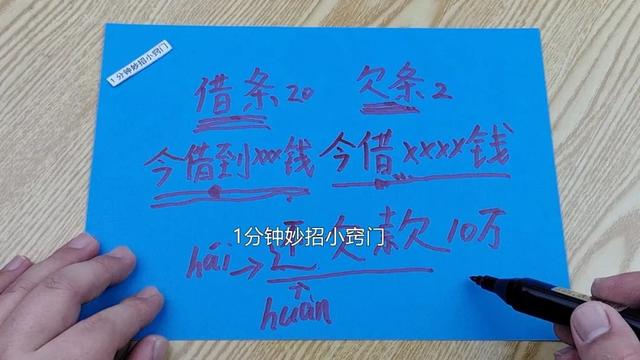 1分钟妙招小窍门
借条20 欠条2
今借到xxx钱 今借xxxx钱
1分钟妙招小窍门
hái→还欠款10万
↑
huán